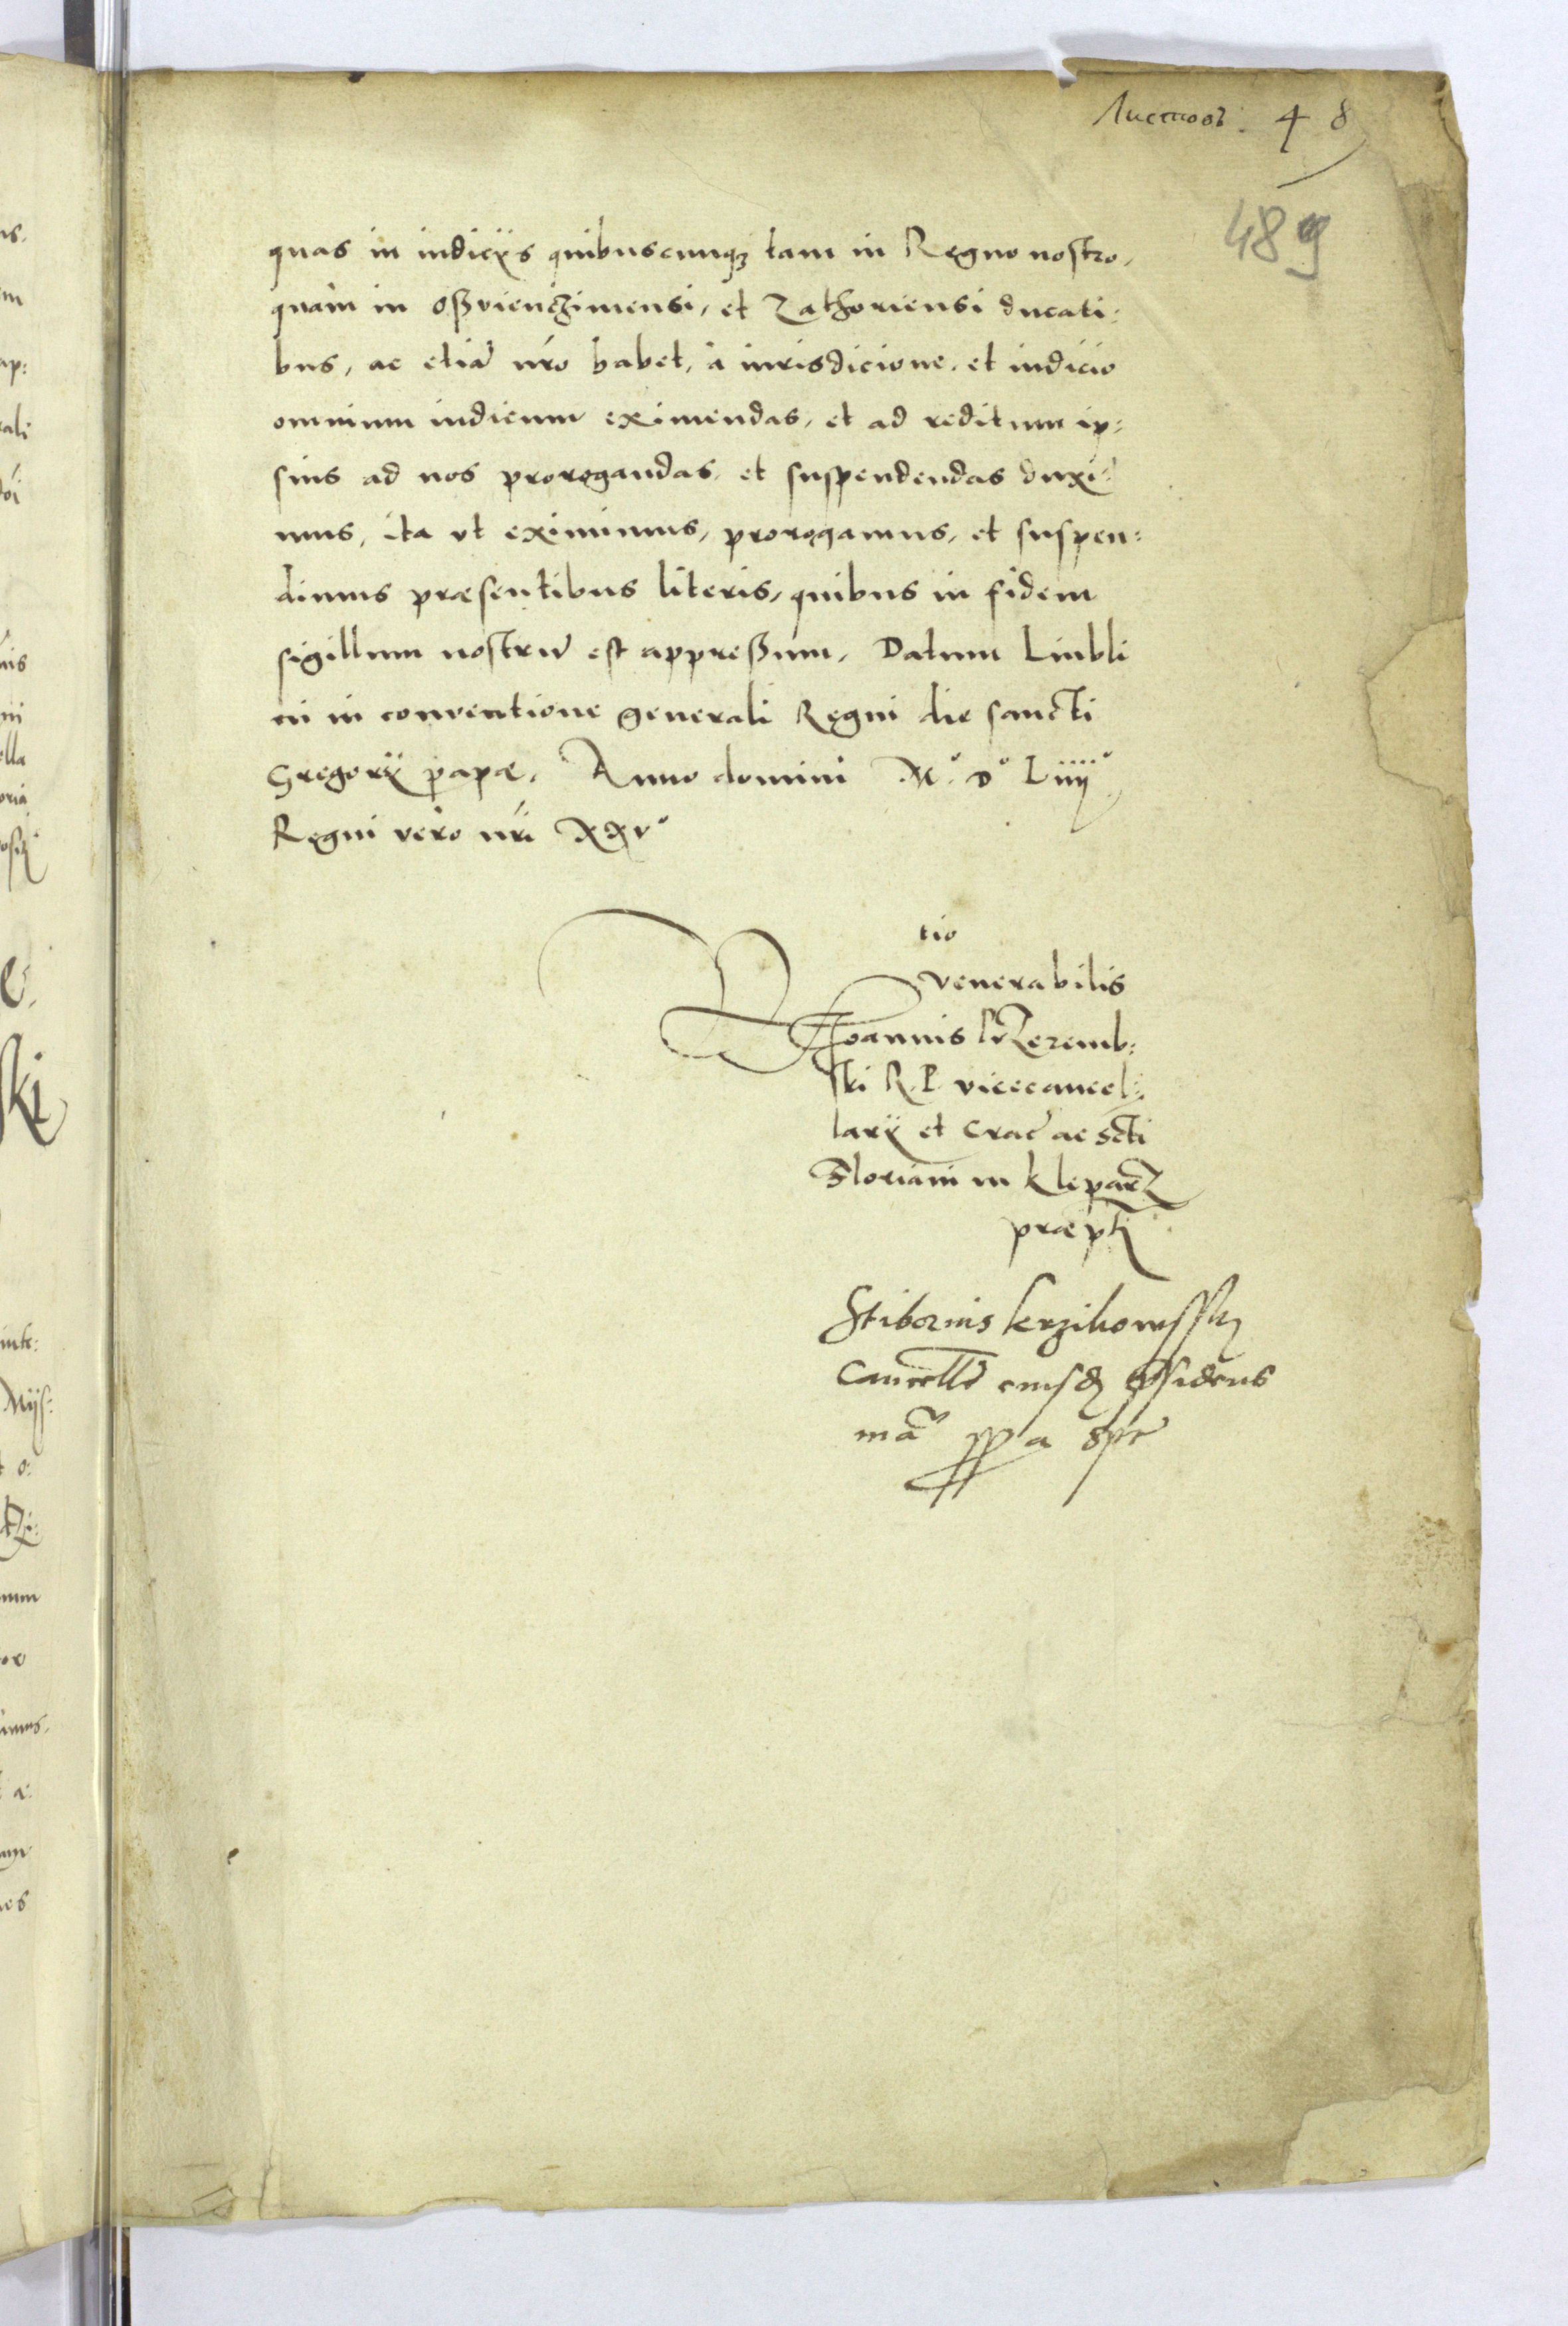 Листовъ. 48
489
quas in iudicijs quibuscunq3 tam in Regno nostro,
quàm in Oßwienczimensi, et Zathoriensi ducati:
bus, ac etiã nro habet, à iurisdicione, et iudicio
omnium iudicum eximendas, et ad reditum ip:
sius ad nos prorogandas, et suspendendas duxi:
mus, ita vt eximimus, prorogamus, et suspen:
dimus præsentibus literis, quibus in fidem
sigillum nostrũ est appreßum, Datum Liubli
in conventione generali Regni die sancti
Gregorij papæ, Anno domini M° D° Liiij°
Regni vero nri XXV°
tio
venerabilis
Joannis Przeremb:
ski R. P. vicecancel:
larij et Crac̃ ac Scti
Floriani in Kleparz
præpti
Stiborius
Cancell
mã ppa